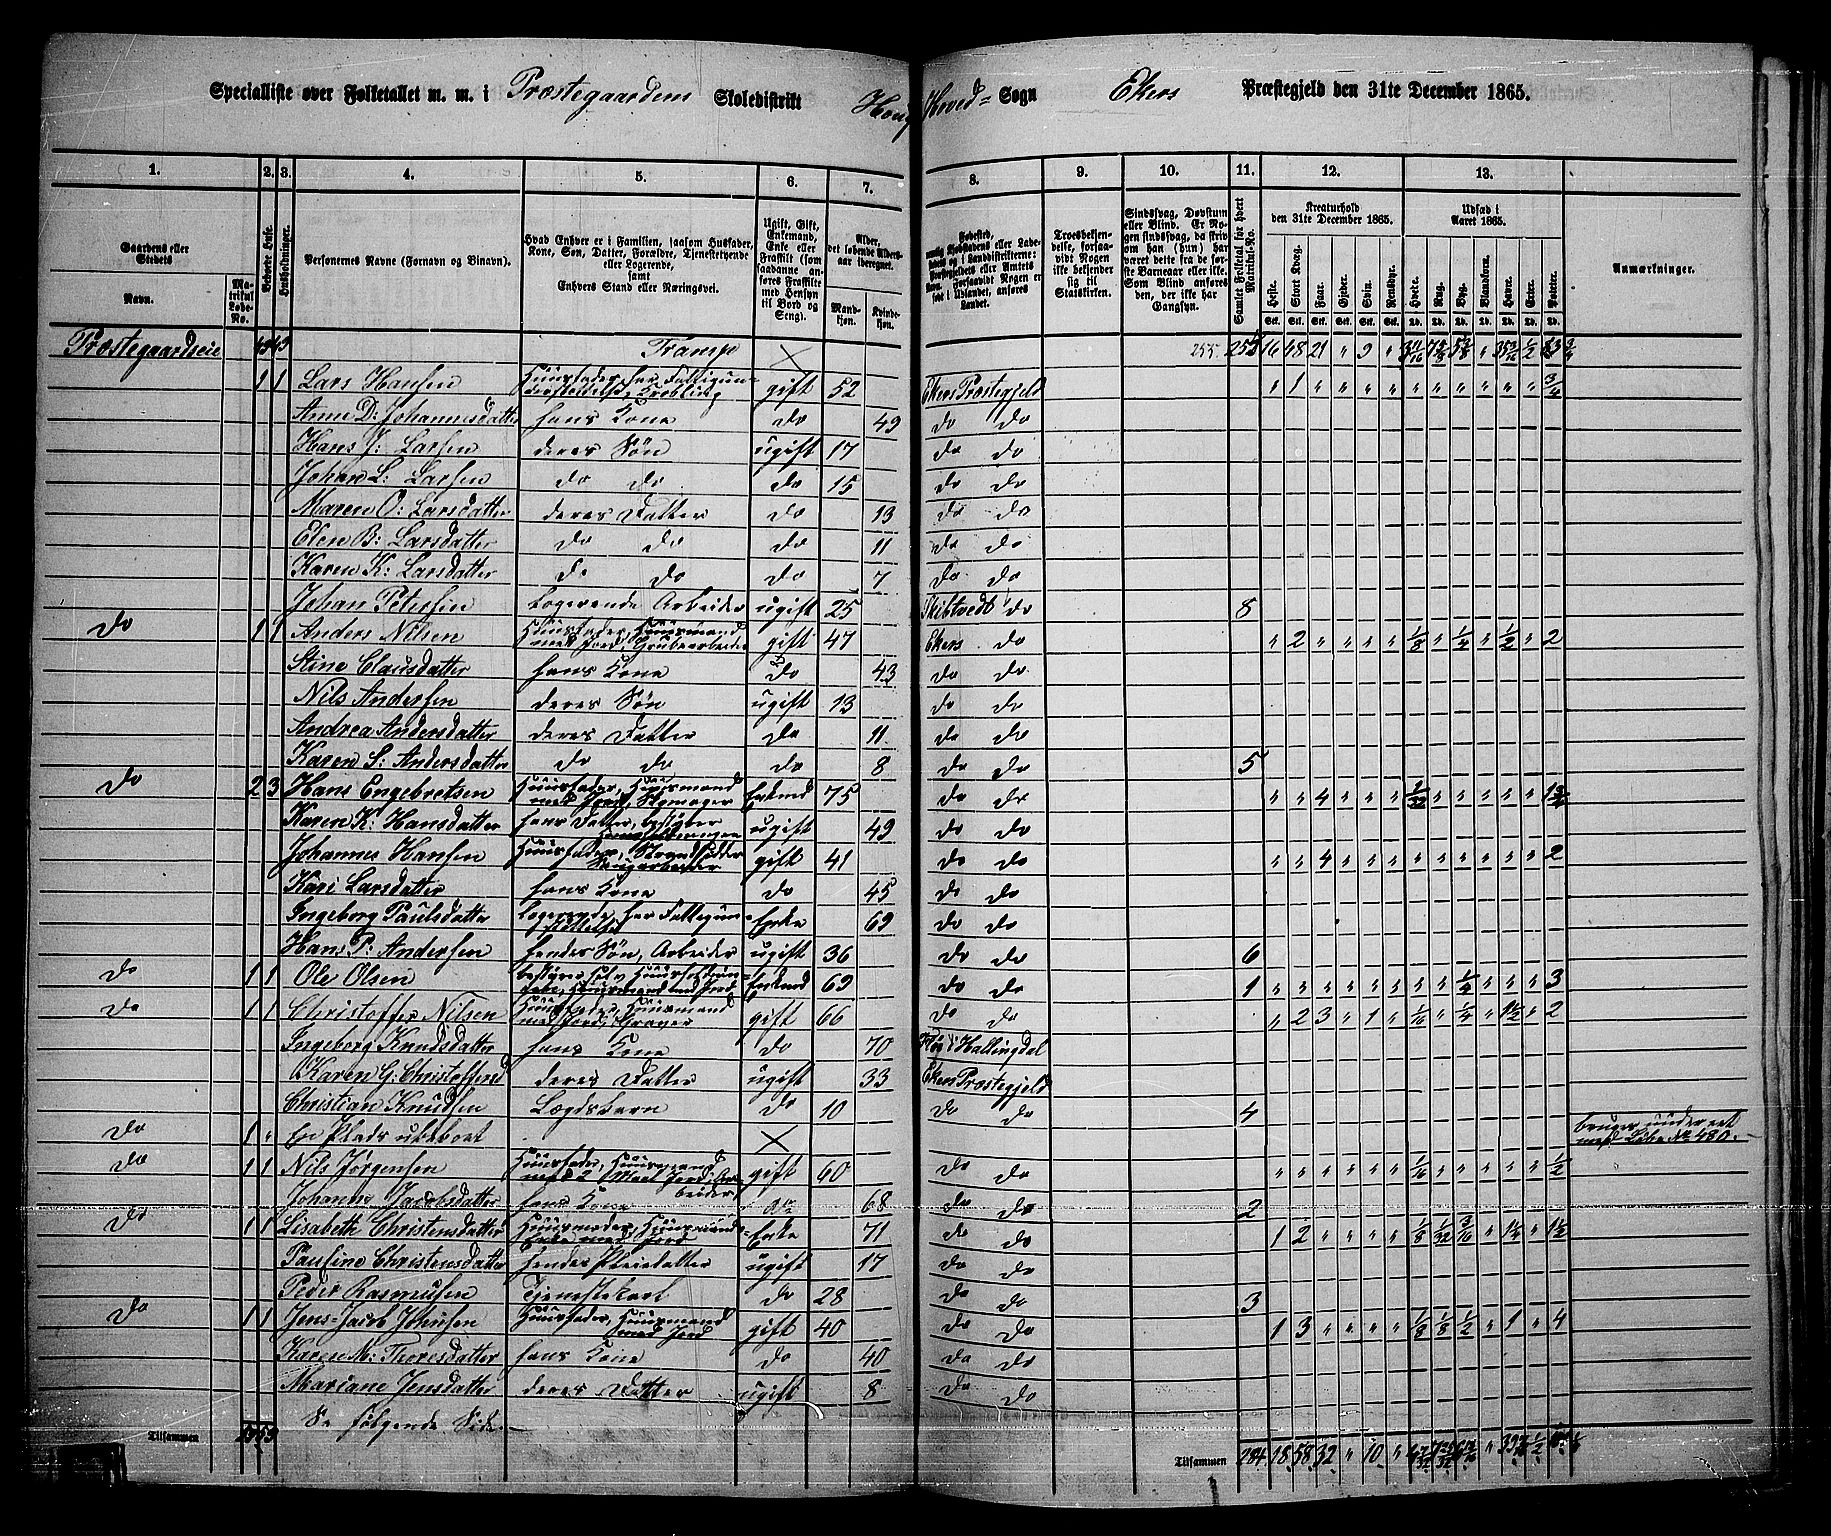 Specialliste over Folketallet m. m. i Præstegaardens Skoledistrikt Houg Hoved= Sogn Ekers Præstegjeld den 31te December 1865.
1. 2. 3. 4. 5. 6. 7. 8. 9. 10. 11. 12. 13.
Gaardens eller Stedets
Navn. Matrikul Løbe-No.
Beboede Huse.
Husholdninger.
Personernes Navne (Fornavn og Binavn).
Hvad Enhver er i Familien, saasom Husfader, Kone, Søn, Datter, Forældre, Tjenestetyende eller Logerende, samt Enhvers Stand eller Næringsvei.
Ugift, Gift, Enkemand, Enke eller Fraskilt (som saadanne anføres Fraskilte med Hensyn til Bord og Seng).
Alder, det løbende Aldersaar iberegnet.
Mandkjøn. Kvindekjøn.
Fødested,
Troesbekjendelse, forsaavidt Nogen ikke bekjender sig til Statskirken.
Sindssvag, Døvstum eller Blind. Er Nogen sindssvag, da skrives om han (hun) har været dette fra de første Barneaar eller ikke. Som Blind anføres den, der ikke har Gangsyn.
Samlet Folketal for hvert Matrikul-No.
Kreaturhold den 31te December 1865.
Heste. Stort Kvæg. Faar. Gjeder. Svin. Rensdyr.
Udsæd i Aaret 1865.
Hvede. Rug. Byg. Blandkorn. Havre. Erter. Poteter.
Anmærkninger.
Præstegaardseie 43 43 Transp 255 16 48 21 " 9 "
1 1 Lars Hansen gift 52 Ekers Præstegjeld " 1 " " " " " " " " " " 3/4
Anne D: Johannesdatter hans Kone do 49 do do
Hans J: Larsen deres Søn ugift 17 do do
Johan L: Larsen do do do 15 do do
Maren O: Larsdatter deres Datter do 13 do do
Elen B: Larsdatter do do do 11 do do
Karen K: Larsdatter do do do 7 do do
Johan Petersen Logerende Arbeider ugift 25 Skibtvedt do 8
do 1 1 Anders Nilsen Huusfader, Huusmand med Jord, Grubearbeider gift 47 Ekers do " 2 " " " " 1/8 " 1/4 " 1/2 " 2
Stine Clausdatter hans Kone do 43 do do
Nils Andersen deres Søn ugift 13 do do
Andrea Andersdatter deres Datter do 11 do do
Karen S: Andersdatter do do do 8 do do 5
do 2 3 Hans Engebretsen Huusfader, Huusmand med Jord, Skomager Enkmd 75 do do " " 4 " " " 1/32 " " " " "
Karen K: Hansdatter hans Datter, bestyrer ugift 49 do do
Johannes Hansen Huusfader, gift 41 do do " " 4 " " " " " " " " " 2
Kari Larsdatter hans Kone do 45 do do
Ingeborg Paulsdatter Logerende, har Fattigunderstøttelse Enke 69 do do
Hans P: Andersen hendes Søn, Arbeider ugift 36 do do 6
do 1 1 Ole Olsen Huusmand med Jord Enkmd 69 do do 1 " " " " " " " " 1/4 " " " 3
do 1 1 Christoffer Nilsen Huusfader, Huusmand med Jord, Graver gift 66 do do " 2 3 " 1 " 1/16 " 1/4 " 1 1/2 " 2
Ingeborg Knudsdatter hans Kone do 70 i Hallingdal
Karen G: Christoffersd deres Datter ugift 33 Ekers Præstegjeld
Christian Knudsen Lægdsbarn do 10 do do 4
do 1 " En Plads ubeboet bruges under et med Løbe No 480.
do 1 1 Nils Jørgensen Huusfader, Huusmand med 2 Maal Jord, Arbeider gift 60 do do " " " " " " 1/16 " " " " " 1/2
Johanne Jacobsdatter hans Kone do 68 do do 2
do 1 1 Lisabeth Christensdatter Huusmoder, Huusmands Enke med Jord Enke 71 do do 1 2 " " " " 1/8 1/32 3/16 " 1 1/4 " 1 1/2
Pauline Christensdatter hendes Pleiedatter ugift 17 do do
Peder Rasmusen Tjenestekarl do 28 do do 3
do 1 1 Jens=Jacob Johnsen Huusfader, Huusmand med Jord gift 40 do do 1 3 " " " " 1/8 1/8 1/2 " 1 " 4
Karen M: Thoresdatter hans Kone do 40 do do
Mariane Jensdatter deres Datter ugift 8 do do
Se følgende Side.
Tilsammen Tilsammen 284 18 58 32 " 10 "